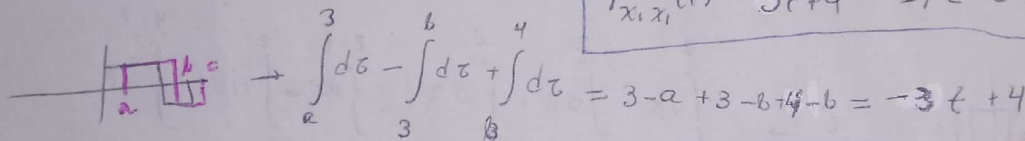 x₁x₁
a b c → ∫ₐ³ dτ − ∫₃ᵇ dτ + ∫ᵦ⁴ dτ = 3-a +3-b+4-b = -3t +4